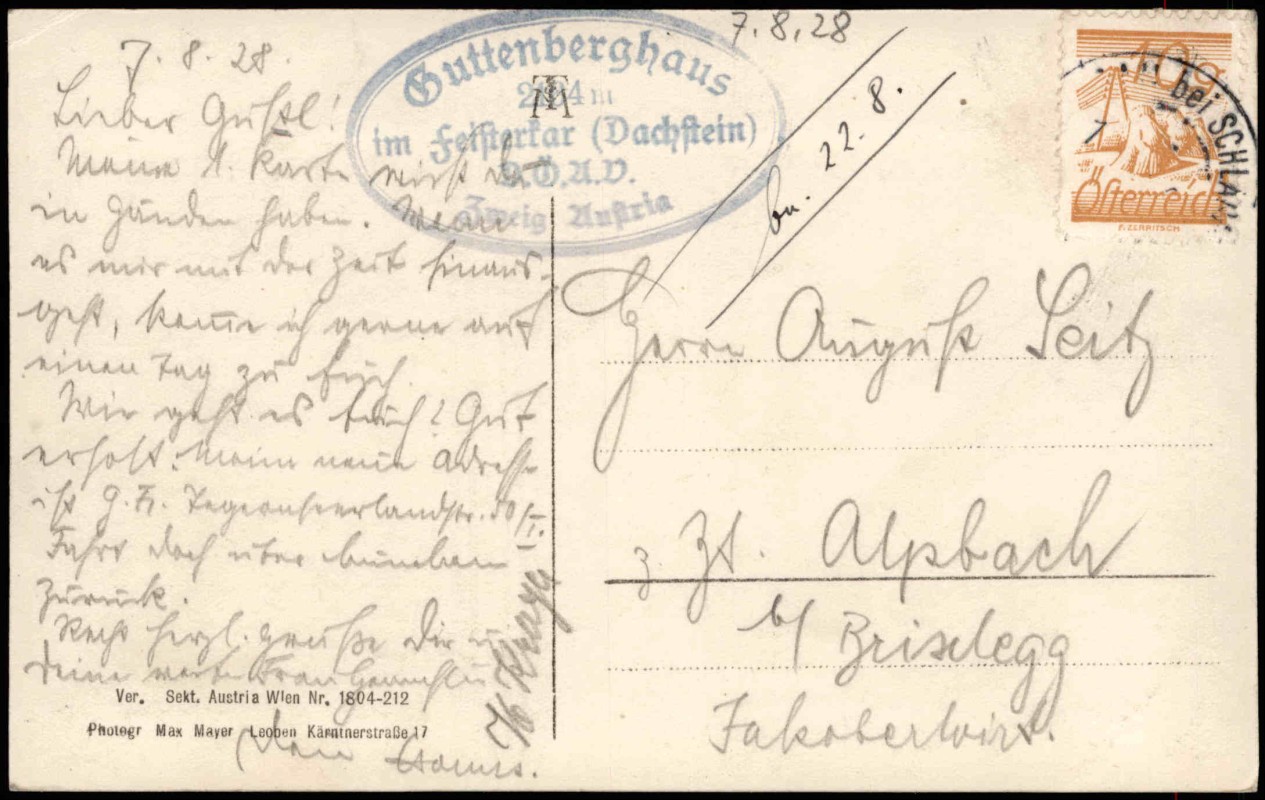 7. 8. 28.
Lieber Gustl!
Meine 1. Karte wirst du
in Händen haben. Wenn
es mir mit der Zeit hinaus-
geht, komme ich gerne auf
einen Tag zu Euch.
Wie geht es Euch? Gut
erholt. Meine neue Adresse
ist z. Zt. Tegernseerlandstr. 50/I.
Fahrt doch über München
zurück.
Recht herzl. Grüße Dir u.
Deine werte Frau Gemahlin
Dein
Guttenberghaus
im Feisterkar (Dachstein)
D.Ö.A.V.
Zweig Austria
7.8.28
22. 8.
10 g
Österreich
F. ZERRITSCH
bei SCHLADM
Herrn August Seitz
z. Zt. Alpbach
b/ Brixlegg
Jakoberwirt.
Ver. Sekt. Austria Wien Nr. 1804-212
Photogr Max Mayer Leoben Kärntnerstraße 17